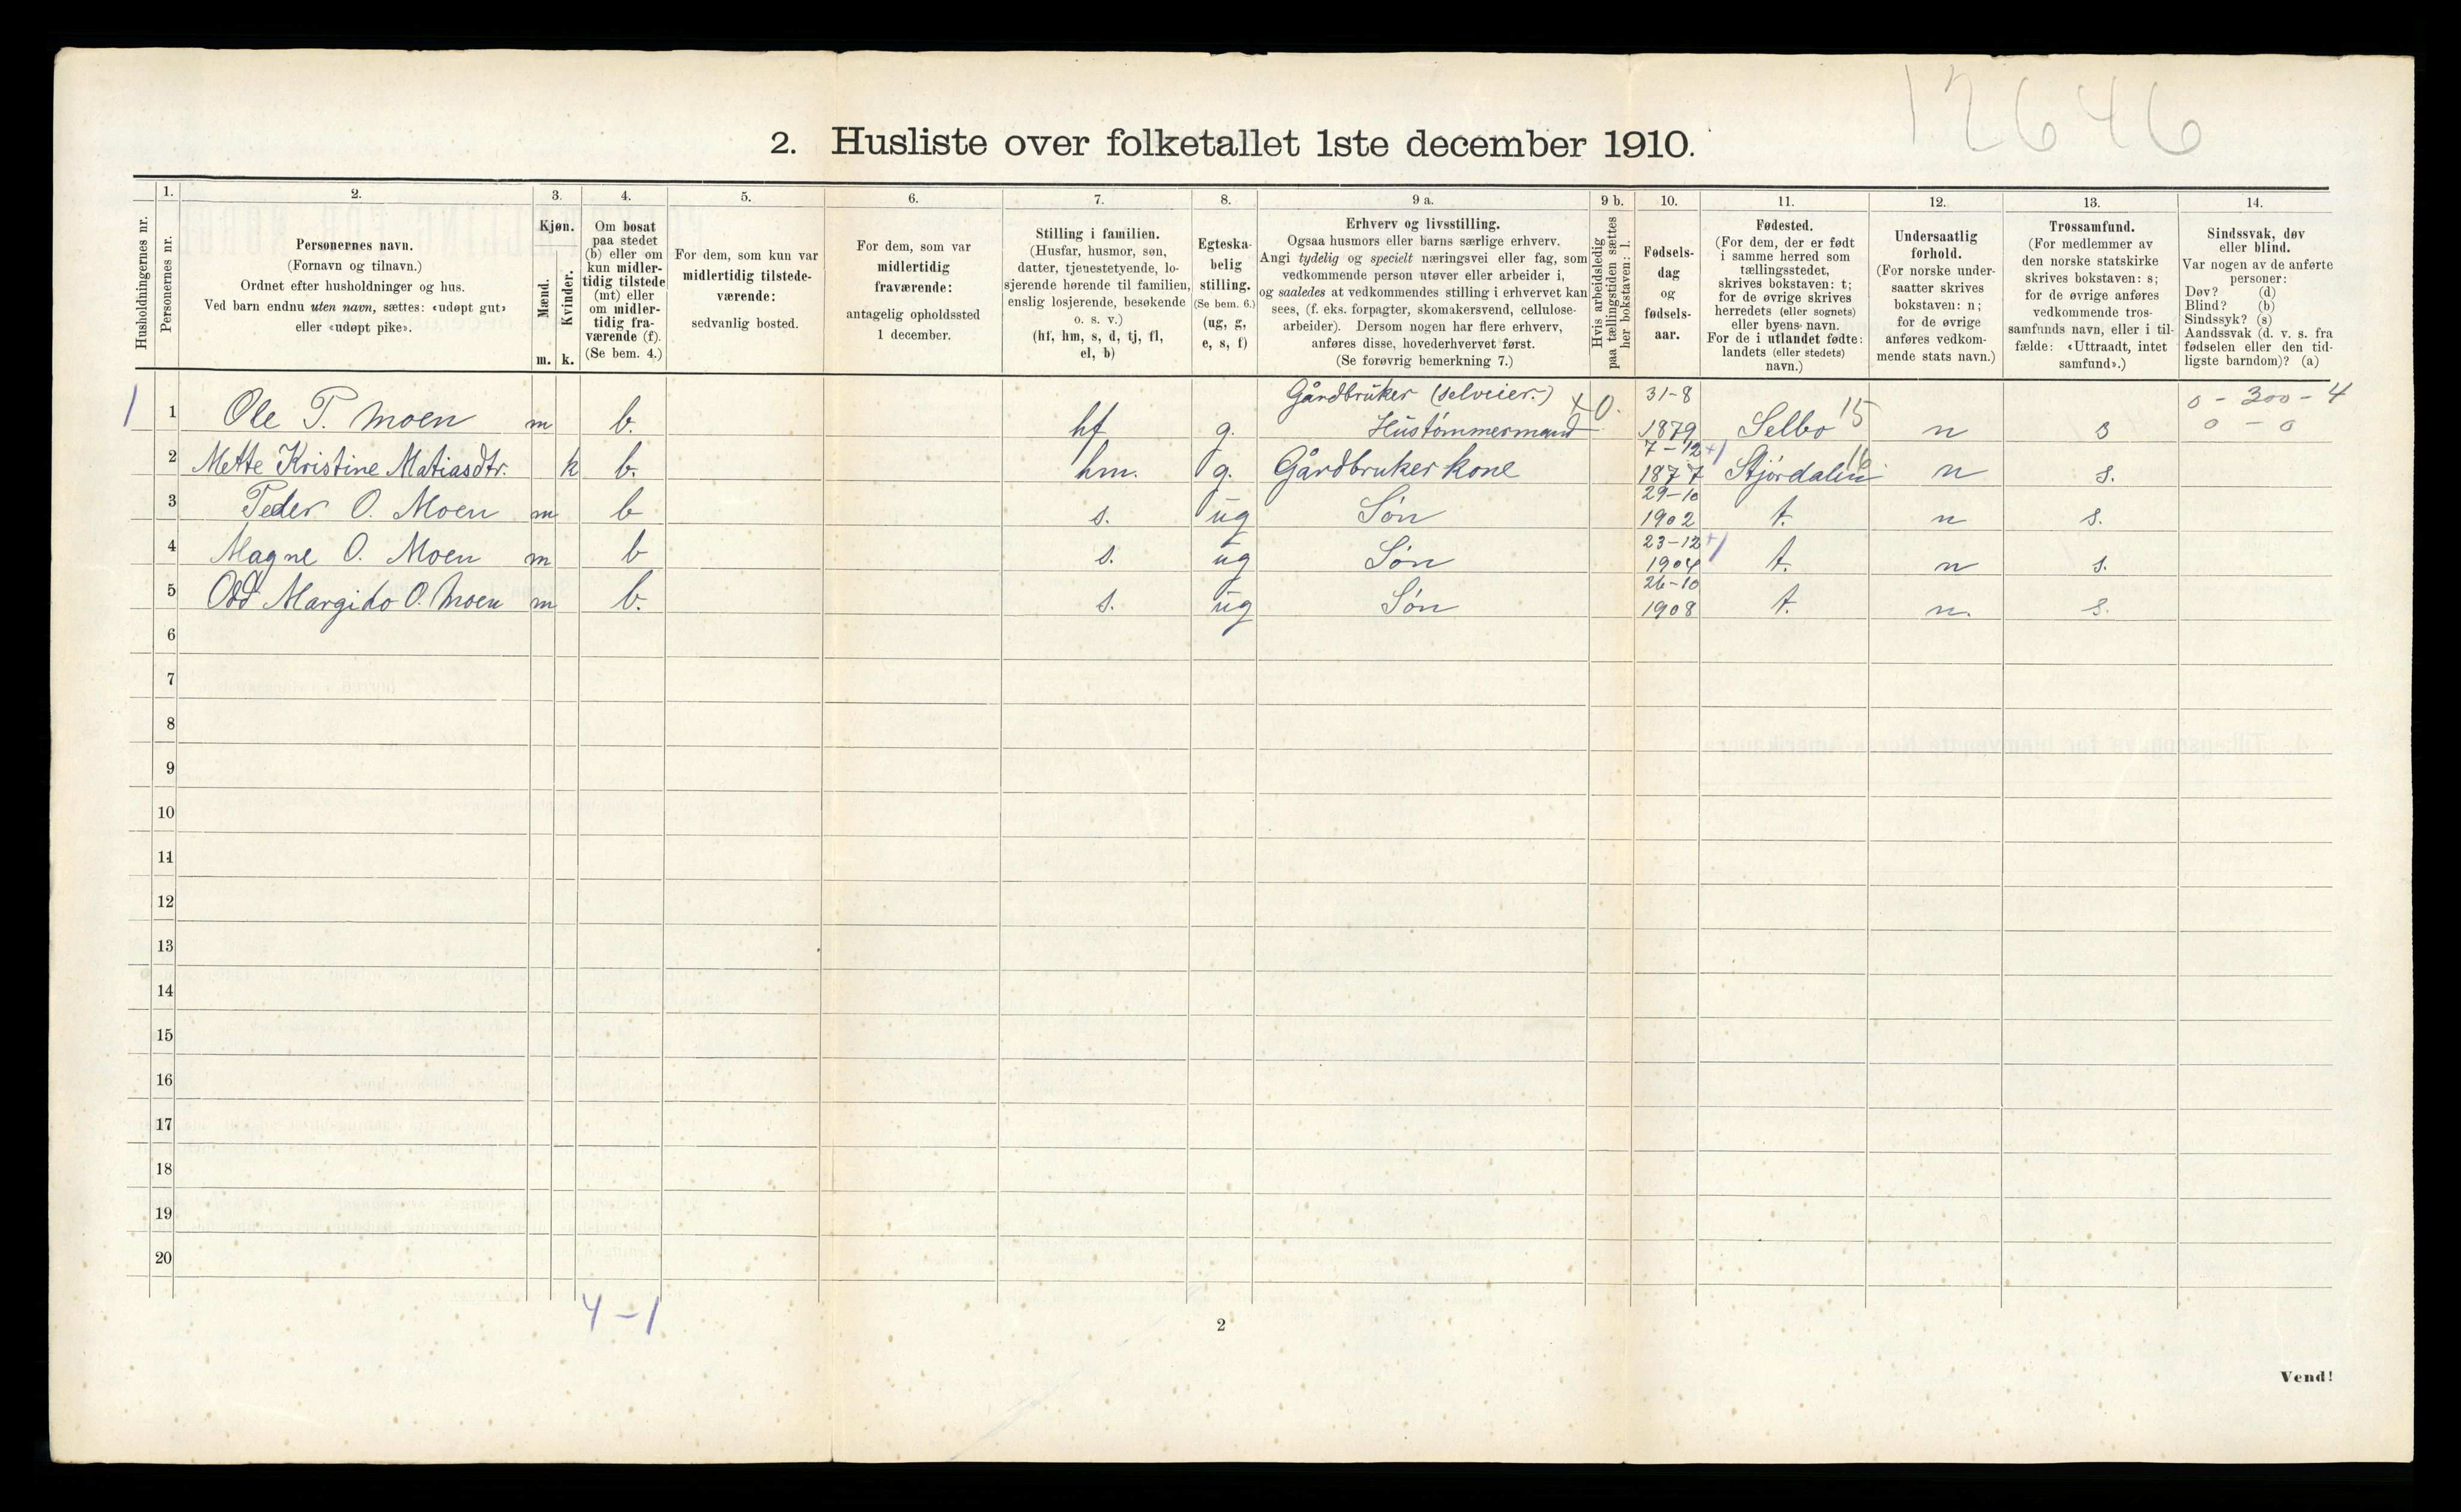 12646
2. Husliste over folketallet 1ste december 1910.
Husholdningernes nr.
1.
Personernes nr.
2.
Personernes navn.
(Fornavn og tilnavn.)
Ordnet efter husholdninger og hus.
Ved barn endnu uten navn, sættes: «udøpt gut»
eller «udøpt pike».
3.
Kjøn.
Mænd.
Kvinder.
m. k.
4.
Om bosat
paa stedet
(b) eller om
kun midler-
tidig tilstede
(mt) eller
om midler-
tidig fra-
værende (f).
(Se bem. 4.)
5.
For dem, som kun var
midlertidig tilstede-
værende:
sedvanlig bosted.
6.
For dem, som var
midlertidig
fraværende:
antagelig opholdssted
1 december.
7.
Stilling i familien.
(Husfar, husmor, søn,
datter, tjenestetyende, lo-
sjerende hørende til familien,
enslig losjerende, besøkende
o. s. v.)
(hf, hm, s, d, tj, fl,
el, b)
8.
Egteska-
belig
stilling.
(Se bem. 6.)
(ug, g,
e, s, f)
9 a.
Erhverv og livsstilling.
Ogsaa husmors eller barns særlige erhverv.
Angi tydelig og specielt næringsvei eller fag, som
vedkommende person utøver eller arbeider i,
og saaledes at vedkommendes stilling i erhvervet kan
sees, (f. eks. forpagter, skomakersvend, cellulose-
arbeider). Dersom nogen har flere erhverv,
anføres disse, hovederhvervet først.
(Se forøvrig bemerkning 7.)
9 b.
Hvis arbeidsledig
paa tællingstiden sættes
her bokstaven: l.
10.
Fødsels-
dag
og
fødsels-
aar.
11.
Fødested.
(For dem, der er født
i samme herred som
tællingsstedet,
skrives bokstaven: t;
for de øvrige skrives
herredets (eller sognets)
eller byens navn.
For de i utlandet fødte:
landets (eller stedets)
navn.)
12.
Undersaatlig
forhold.
(For norske under-
saatter skrives
bokstaven: n;
for de øvrige
anføres vedkom-
mende stats navn.)
13.
Trossamfund.
(For medlemmer av
den norske statskirke
skrives bokstaven: s;
for de øvrige anføres
vedkommende tros-
samfunds navn, eller i til-
fælde: «Uttraadt, intet
samfund».)
14.
Sindssvak, døv
eller blind.
Var nogen av de anførte
personer:
Døv? (d)
Blind? (b)
Sindssyk? (s)
Aandssvak (d. v. s. fra
fødselen eller den tid-
ligste barndom)? (a)
Gårdbruker (selveier.) x 0. 31-8 0 - 300 - 4
1 1 Ole P. Moen m b. hf g. Hustømmermand 1879 Selbo 15 n s 0 - 0
7-12 +1
2 Mette Kristine Matiasdtr. k b. hm. g. Gårdbruker kone 1877 Stjørdalen 16 n s.
29-10
3 Peder O. Moen m b s. ug Søn 1902 t. n s.
23-12 +1
4 Magne O. Moen m b s. ug Søn 1904 t. n s.
26-10
5 Odd Margido O. Moen m b. s. ug Søn 1908 t. n. s.
6
7
8
9
10
11
12
13
14
15
16
17
18
19
20
4 - 1
2
Vend!